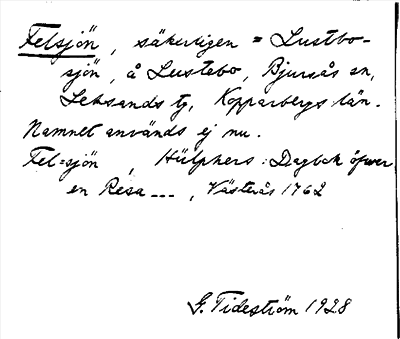 Felsjön, säkerligen = Lustbo-
sjön, å Lustebo, Bjursås sn,
Leksands tg, Kopparbergs län.
Namnet används ej nu.
Fel=sjön, Hülphers: Dagbok öfwer
en Resa ---, Västerås 1762
G. Tideström 1928